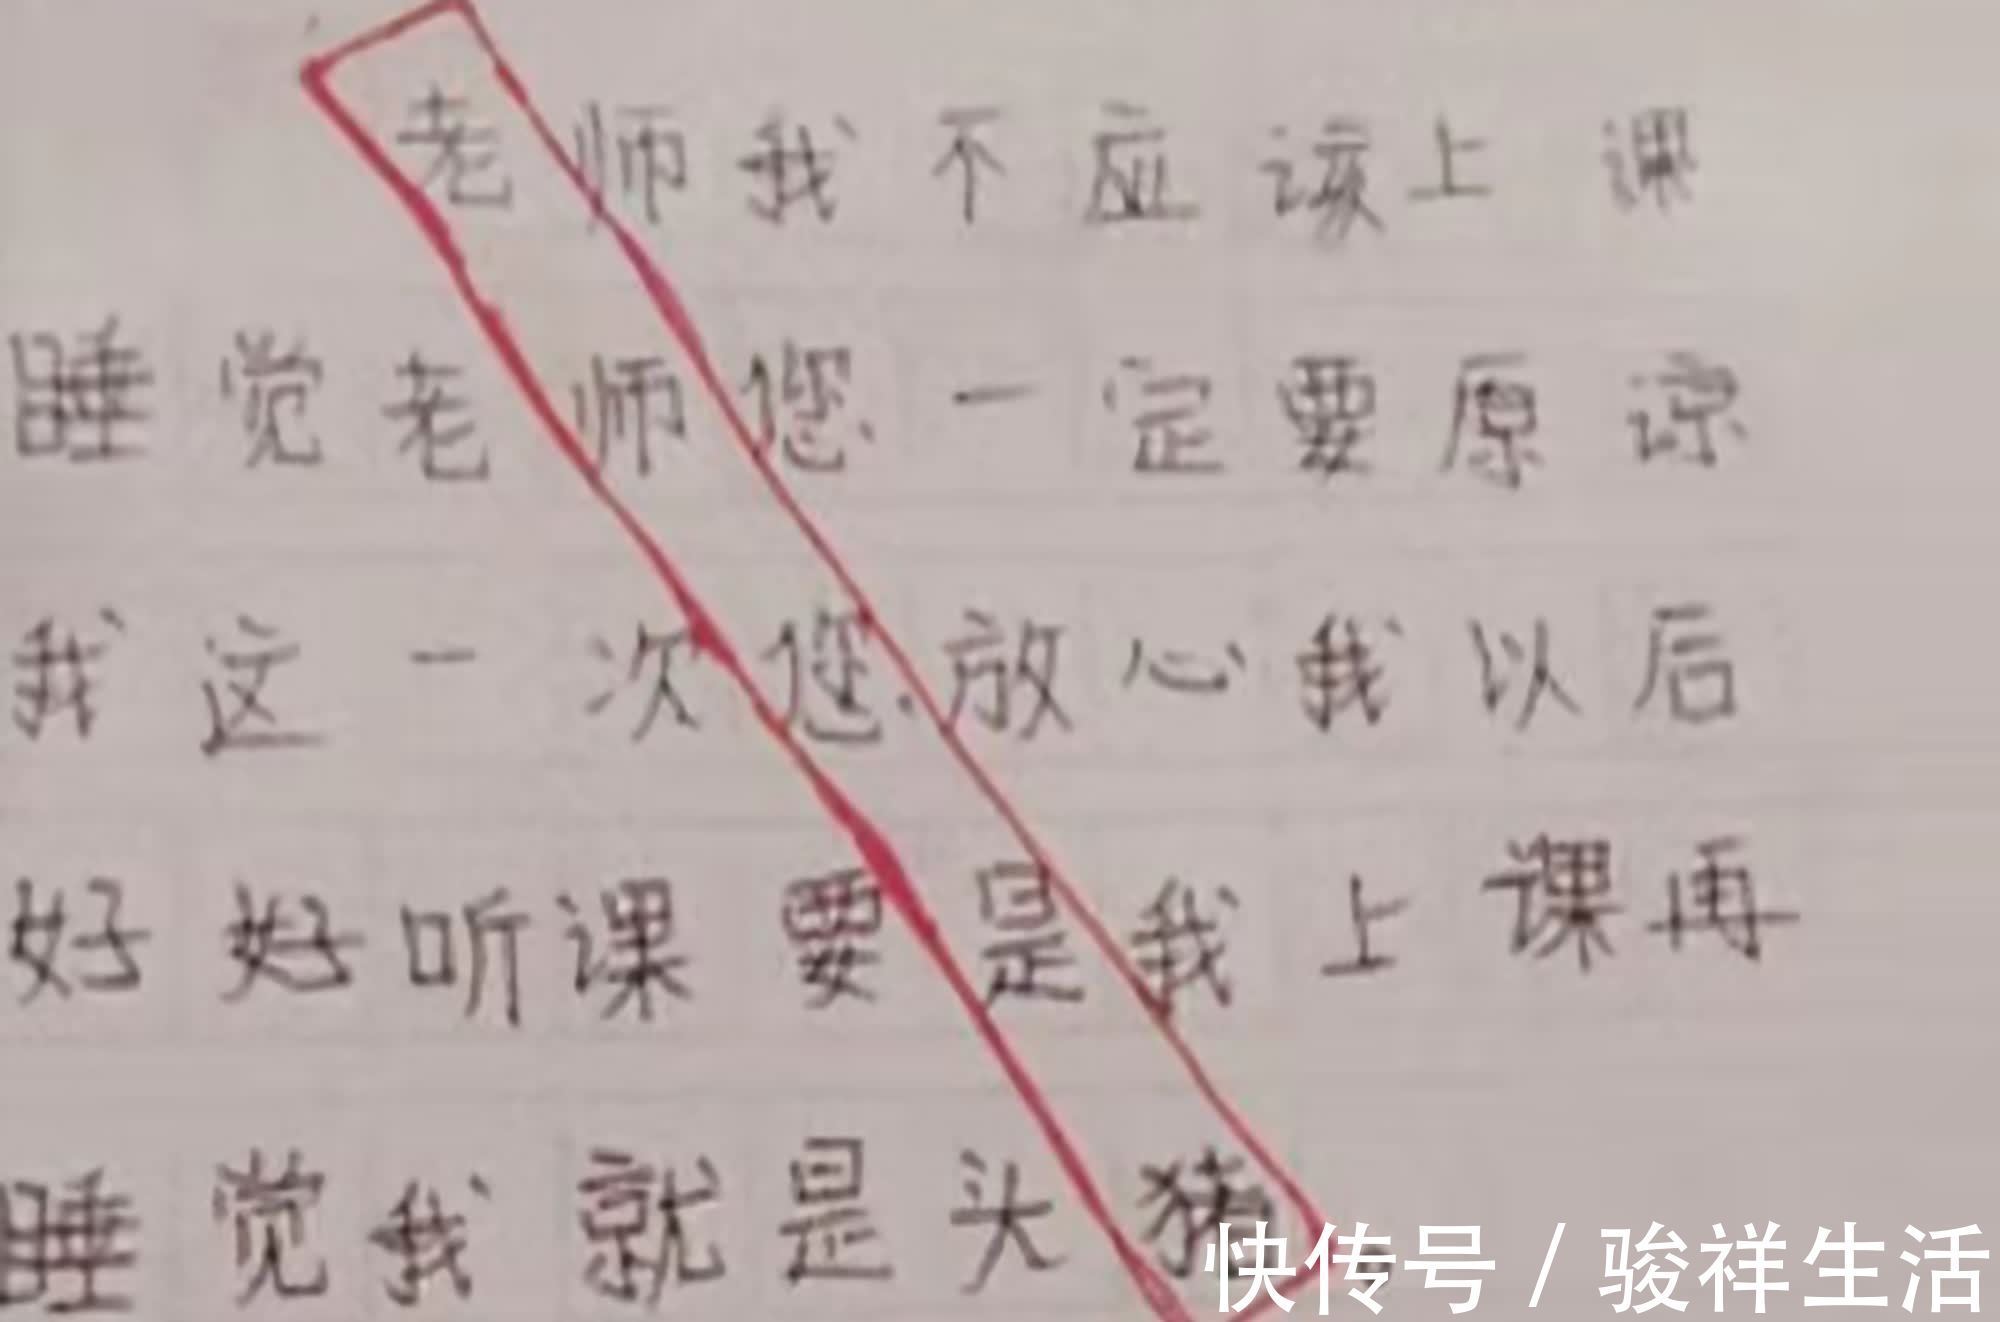 老师我不应该上课
睡觉老师您一定要原谅
我这一次您放心我以后
好好听课要是我上课再
睡觉我就是头猪
快传号/骏祥生活